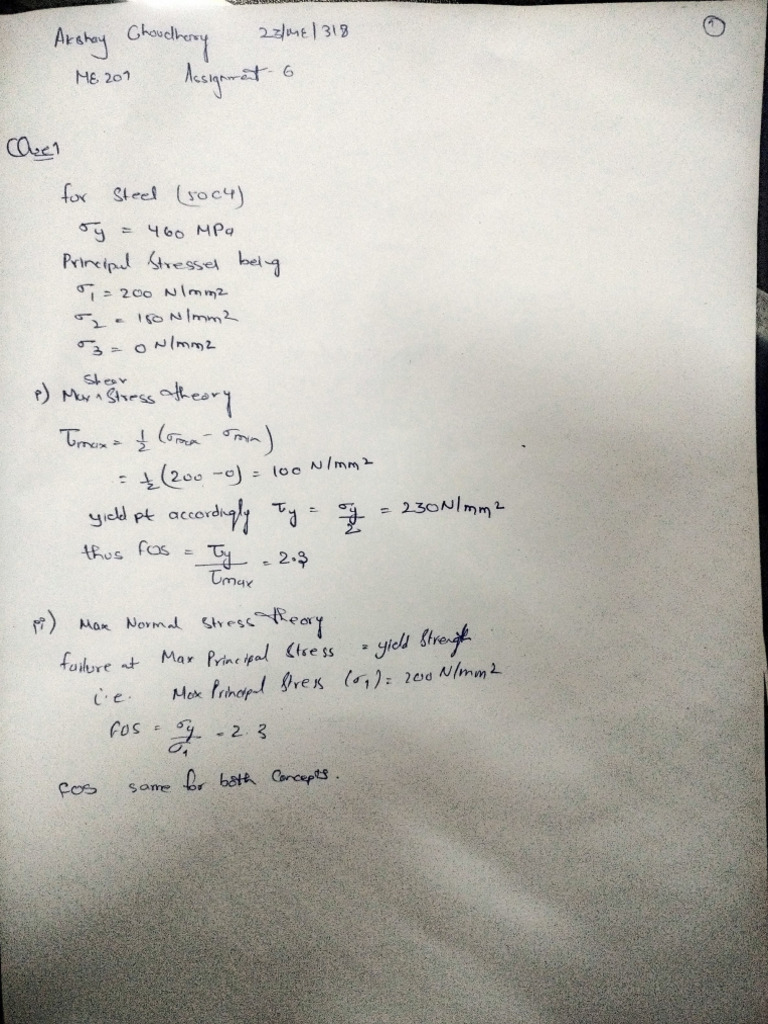 Akshay Choudhery 23/ME/318
①
ME 201 Assignment - 6
Ques1
for Steel (50C4)
σy = 460 MPa
Principal Stresses being
σ1 = 200 N/mm2
σ2 = 150 N/mm2
σ3 = 0 N/mm2
i) Max ^ Shear Stress theory
τmax = 1/2 (σmax - σmin)
= 1/2 (200 - 0) = 100 N/mm2
yield pt accordingly τy = σy/2 = 230N/mm2
thus FOS = τy/τmax = 2.3
ii) Max Normal Stress theory
failure at Max Principal Stress = yield Strength
i.e. Max Principal Stress (σ1) = 200 N/mm2
FOS = σy/σ1 = 2.3
FOS same for both Concepts.